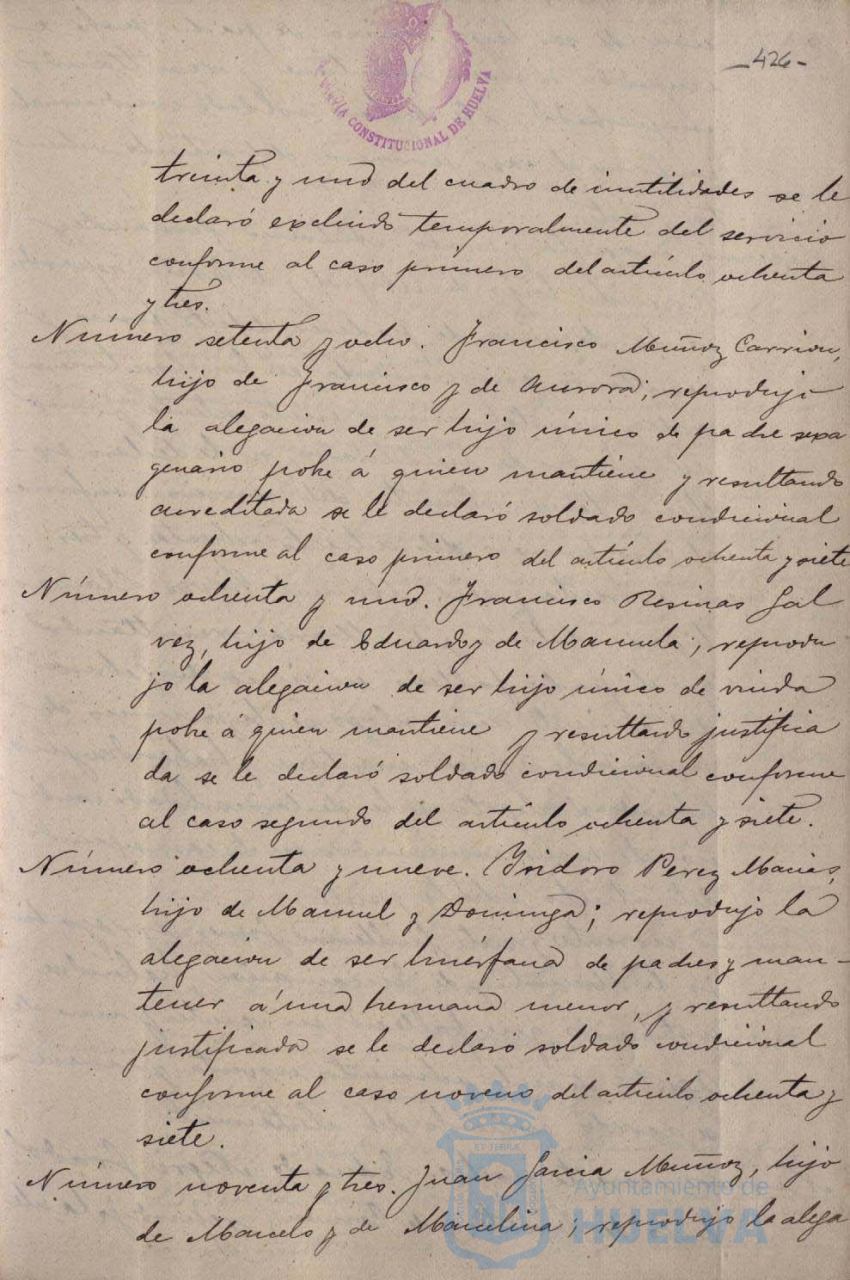 - 426 -
CONSTITUCIONAL DE HUELVA
treinta y uno del cuadro de inutilidades se le
declaró excluido temporalmente del servicio
conforme al caso primero del artículo ochenta
y tres.
Número setenta y ocho. Francisco Muñoz Carrion,
hijo de Francisco y de Aurora; reprodujo
la alegacion de ser hijo único de padre sexa
genario pobre á quien mantiene y resultando
acreditada se le declaró soldado condicional
conforme al caso primero del artículo ochenta y siete
Número ochenta y uno. Francisco Resinas Gal
vez, hijo de Eduardo y de Manuela; reprodu
jo la alegacion de ser hijo único de viuda
pobre á quien mantiene y resultando justifica
da se le declaró soldado condicional conforme
al caso segundo del artículo ochenta y siete.
Número ochenta y nueve. Isidoro Perez Macias,
hijo de Manuel y Dominga; reprodujo la
alegacion de ser huérfano de padres y man-
tener á una hermana menor, y resultando
justificada se le declaró soldado condicional
conforme al caso noveno del artículo ochenta y
siete.
Número noventa y tres. Juan Garcia Muñoz, hijo
de Marcelo y de Marcelina; reprodujo la alega
Ayuntamiento de
HUELVA